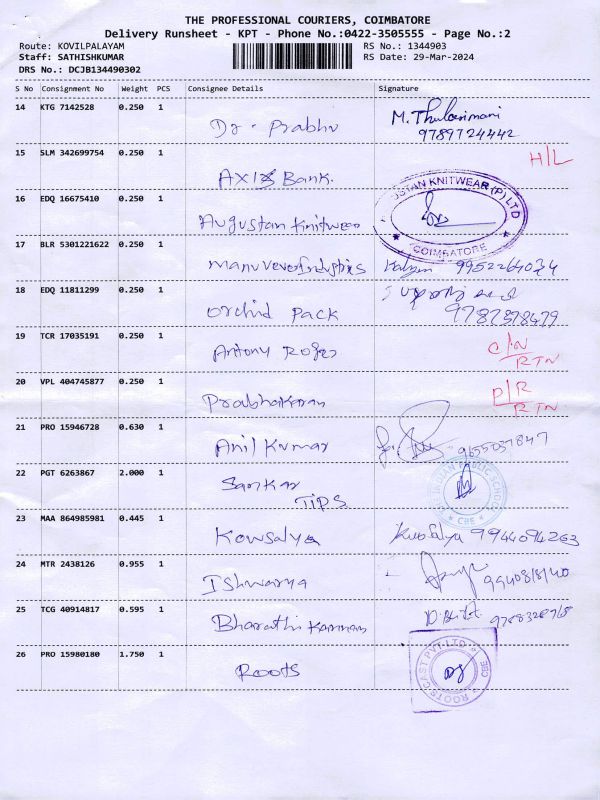 THE PROFESSIONAL COURIERS, COIMBATORE
Delivery Runsheet - KPT - Phone No.:0422-3505555 - Page No.:2
Route: KOVILPALAYAM RS No.: 1344903
Staff: SATHISHKUMAR RS Date: 29-Mar-2024
DRS No.: DCJB134490302
S No Consignment No Weight PCS Consignee Details Signature
14 KTG 7142528 0.250 1
Dr. Prabhu M. Thulasimani
9789724442
15 SLM 342699754 0.250 1 H/L
AXIS Bank.
16 EDQ 16675410 0.250 1 USTAN KNITWEAR (P) LTD
Augustan Knitwear COIMBATORE
17 BLR 5301221622 0.250 1
Manuvever Industries 9952264034
18 EDQ 11811299 0.250 1
Orchid Pack 9787378479
19 TCR 17035191 0.250 1
Antony Roger C/N
RTN
20 VPL 404745877 0.250 1 P/R
Prabhakaran RTN
21 PRO 15946728 0.630 1
Anil Kumar 9655037847
22 PGT 6263867 2.000 1 INDIAN PUBLIC SCHOOL
Sankar CBE
TIPS
23 MAA 864985981 0.445 1
Kowsalya Kowsalya 9944094263
24 MTR 2438126 0.955 1
Ishwarya 9940818140
25 TCG 40914817 0.595 1
Bharathi Kannan 9788328768
26 PRO 15980180 1.750 1 ROOTS CAST PVT LTD
Roots CBE